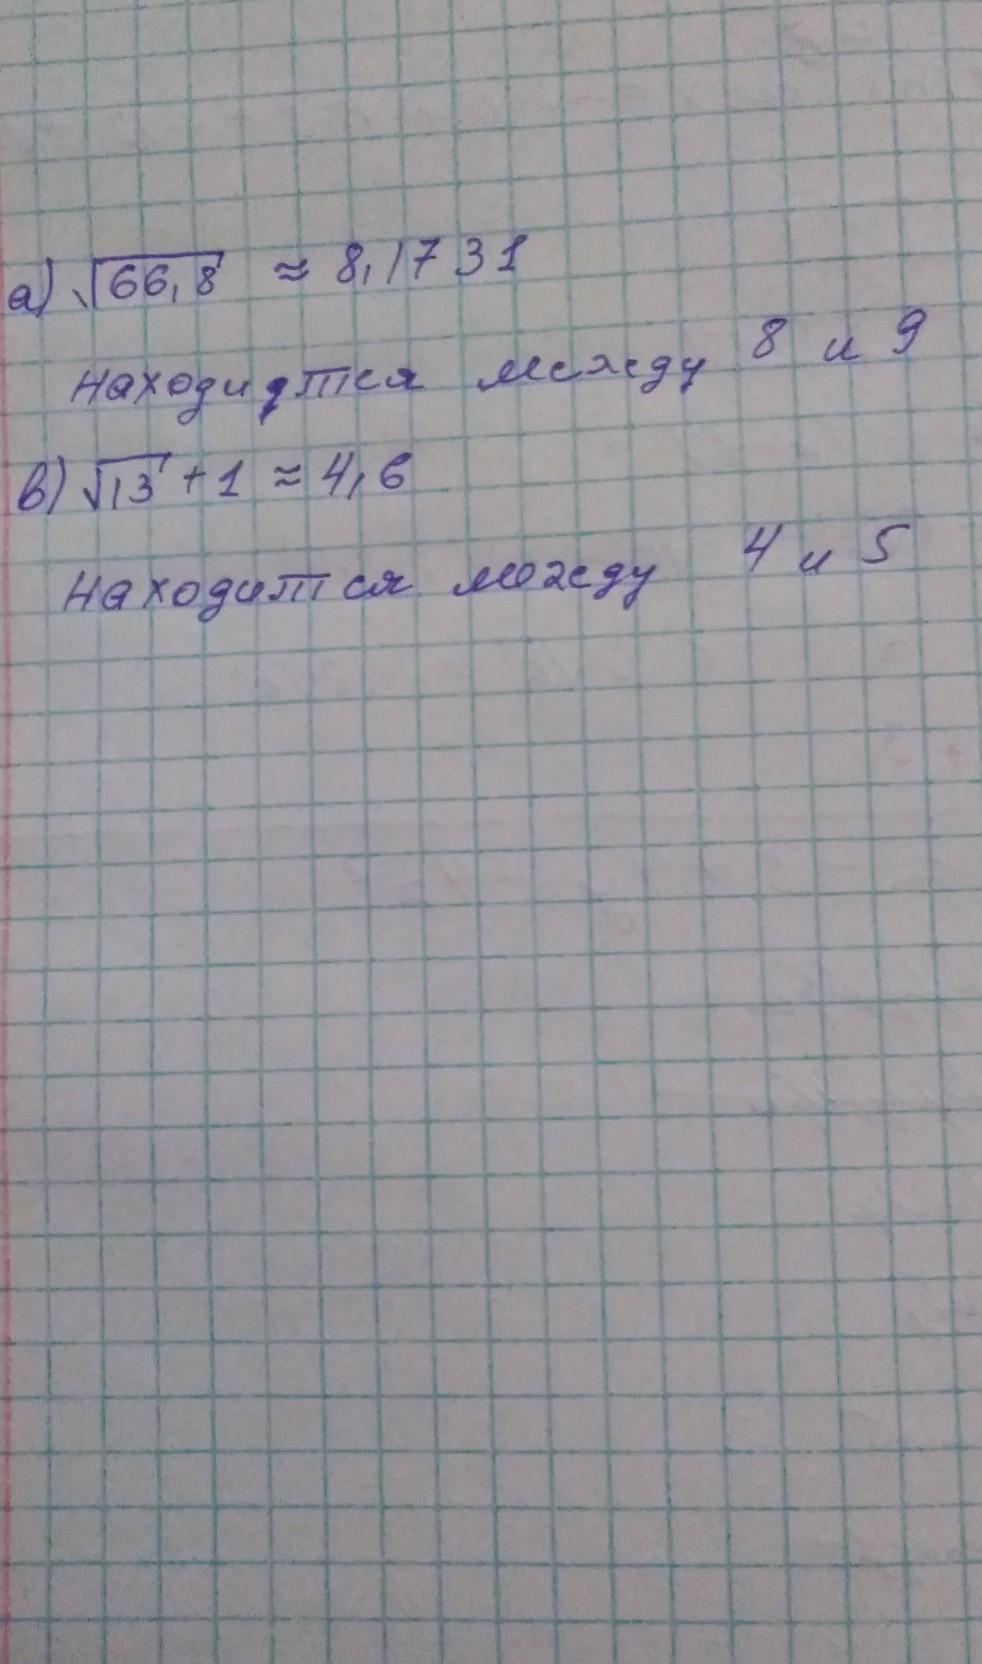 а) √66,8 ≈ 8,1731
находится между 8 и 9
в) √13 + 1 ≈ 4,6
находится между 4 и 5